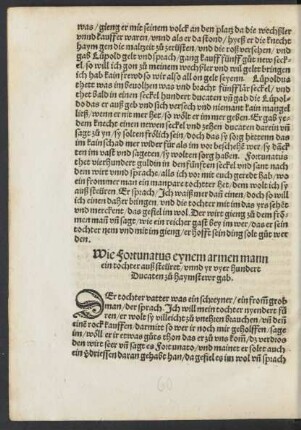 was / gieng er mit seinem volck an den platz da die wechßler
vnnd kauffer waren / vnnd als er da stond / hyeß er die knecht
haym gen die maltzeit zů zerüsten / vnd die roß versehen / vnd
gab Lüpold gelt vnd sprach / gang kauff fünff gůt new seck-
el / so will ich gon zů meinem wechsler vnd wil gelt bringen
ich hab kain frewd so wir also all on gelt seyen. Lüpoldus
thett was im bevolhen was vnd bracht fünff lär seckel / vnd
thet bald in einen seckel hundert ducaten vñ gab die Lüpol-
do das er auß geb vnd sich versech vnd niemant kain mangel
ließ / wenn er nit mer het / so wölt er im mer geben. Er gab ye-
dem knecht einen newen seckel vnd zehen ducaten darein vñ
sagt zů yn / sy solten frölich sein / doch das sy sorg hettent das
im kain schad mer wider für als im vor beschehẽ wer / sy dãck
ten im vast vnd sagten / sy wolten sorg haben. Fortunatus
thet vierhundert guldin in den fünften seckel vnd sant nach
dem wirt vnd sprach / als ich vor mit euch geredt hab / wo
ein frommer man ein manpare tochter het dem wolt ich sy
auß stellren. Er sprach / Ich waiß mer dañ einen. doch so will
ich einen daher bringen / vnd die tochter mit im das yrs sehẽt
vnd merckent. das gefiel im wol. Der wirt gieng zů dem frõ-
men mañ vñ sagt / wie ein reicher gast bey im wer / das er sein
tochter nem vnd mit im gieng / er hofft sein ding solt gůt wer
den.
Wie Fortunatus eynem armen mann
ein tochter auß stellret, vnnd yr vyer hundert
Ducaten zů haymstewr gab.
DEr tochter vatter was ein schreyner / ein from̃ grob
man / der sprach. Ich will mein tochter nyendert fü
ren / er wolt sy villeicht zů vneeren brauchen / vñ deñ
eins rock kauffen / darmit so wer ir noch mir geholffen / sage
im / wöll er ir etwas gůts thon das er zů vns kom̃ / dz verdros
den wirt seer vñ sagt es Fortunato / vnd mainet er solt auch
ein verdriessen daran gehabt han / da gefiel es im wol vñ sprach